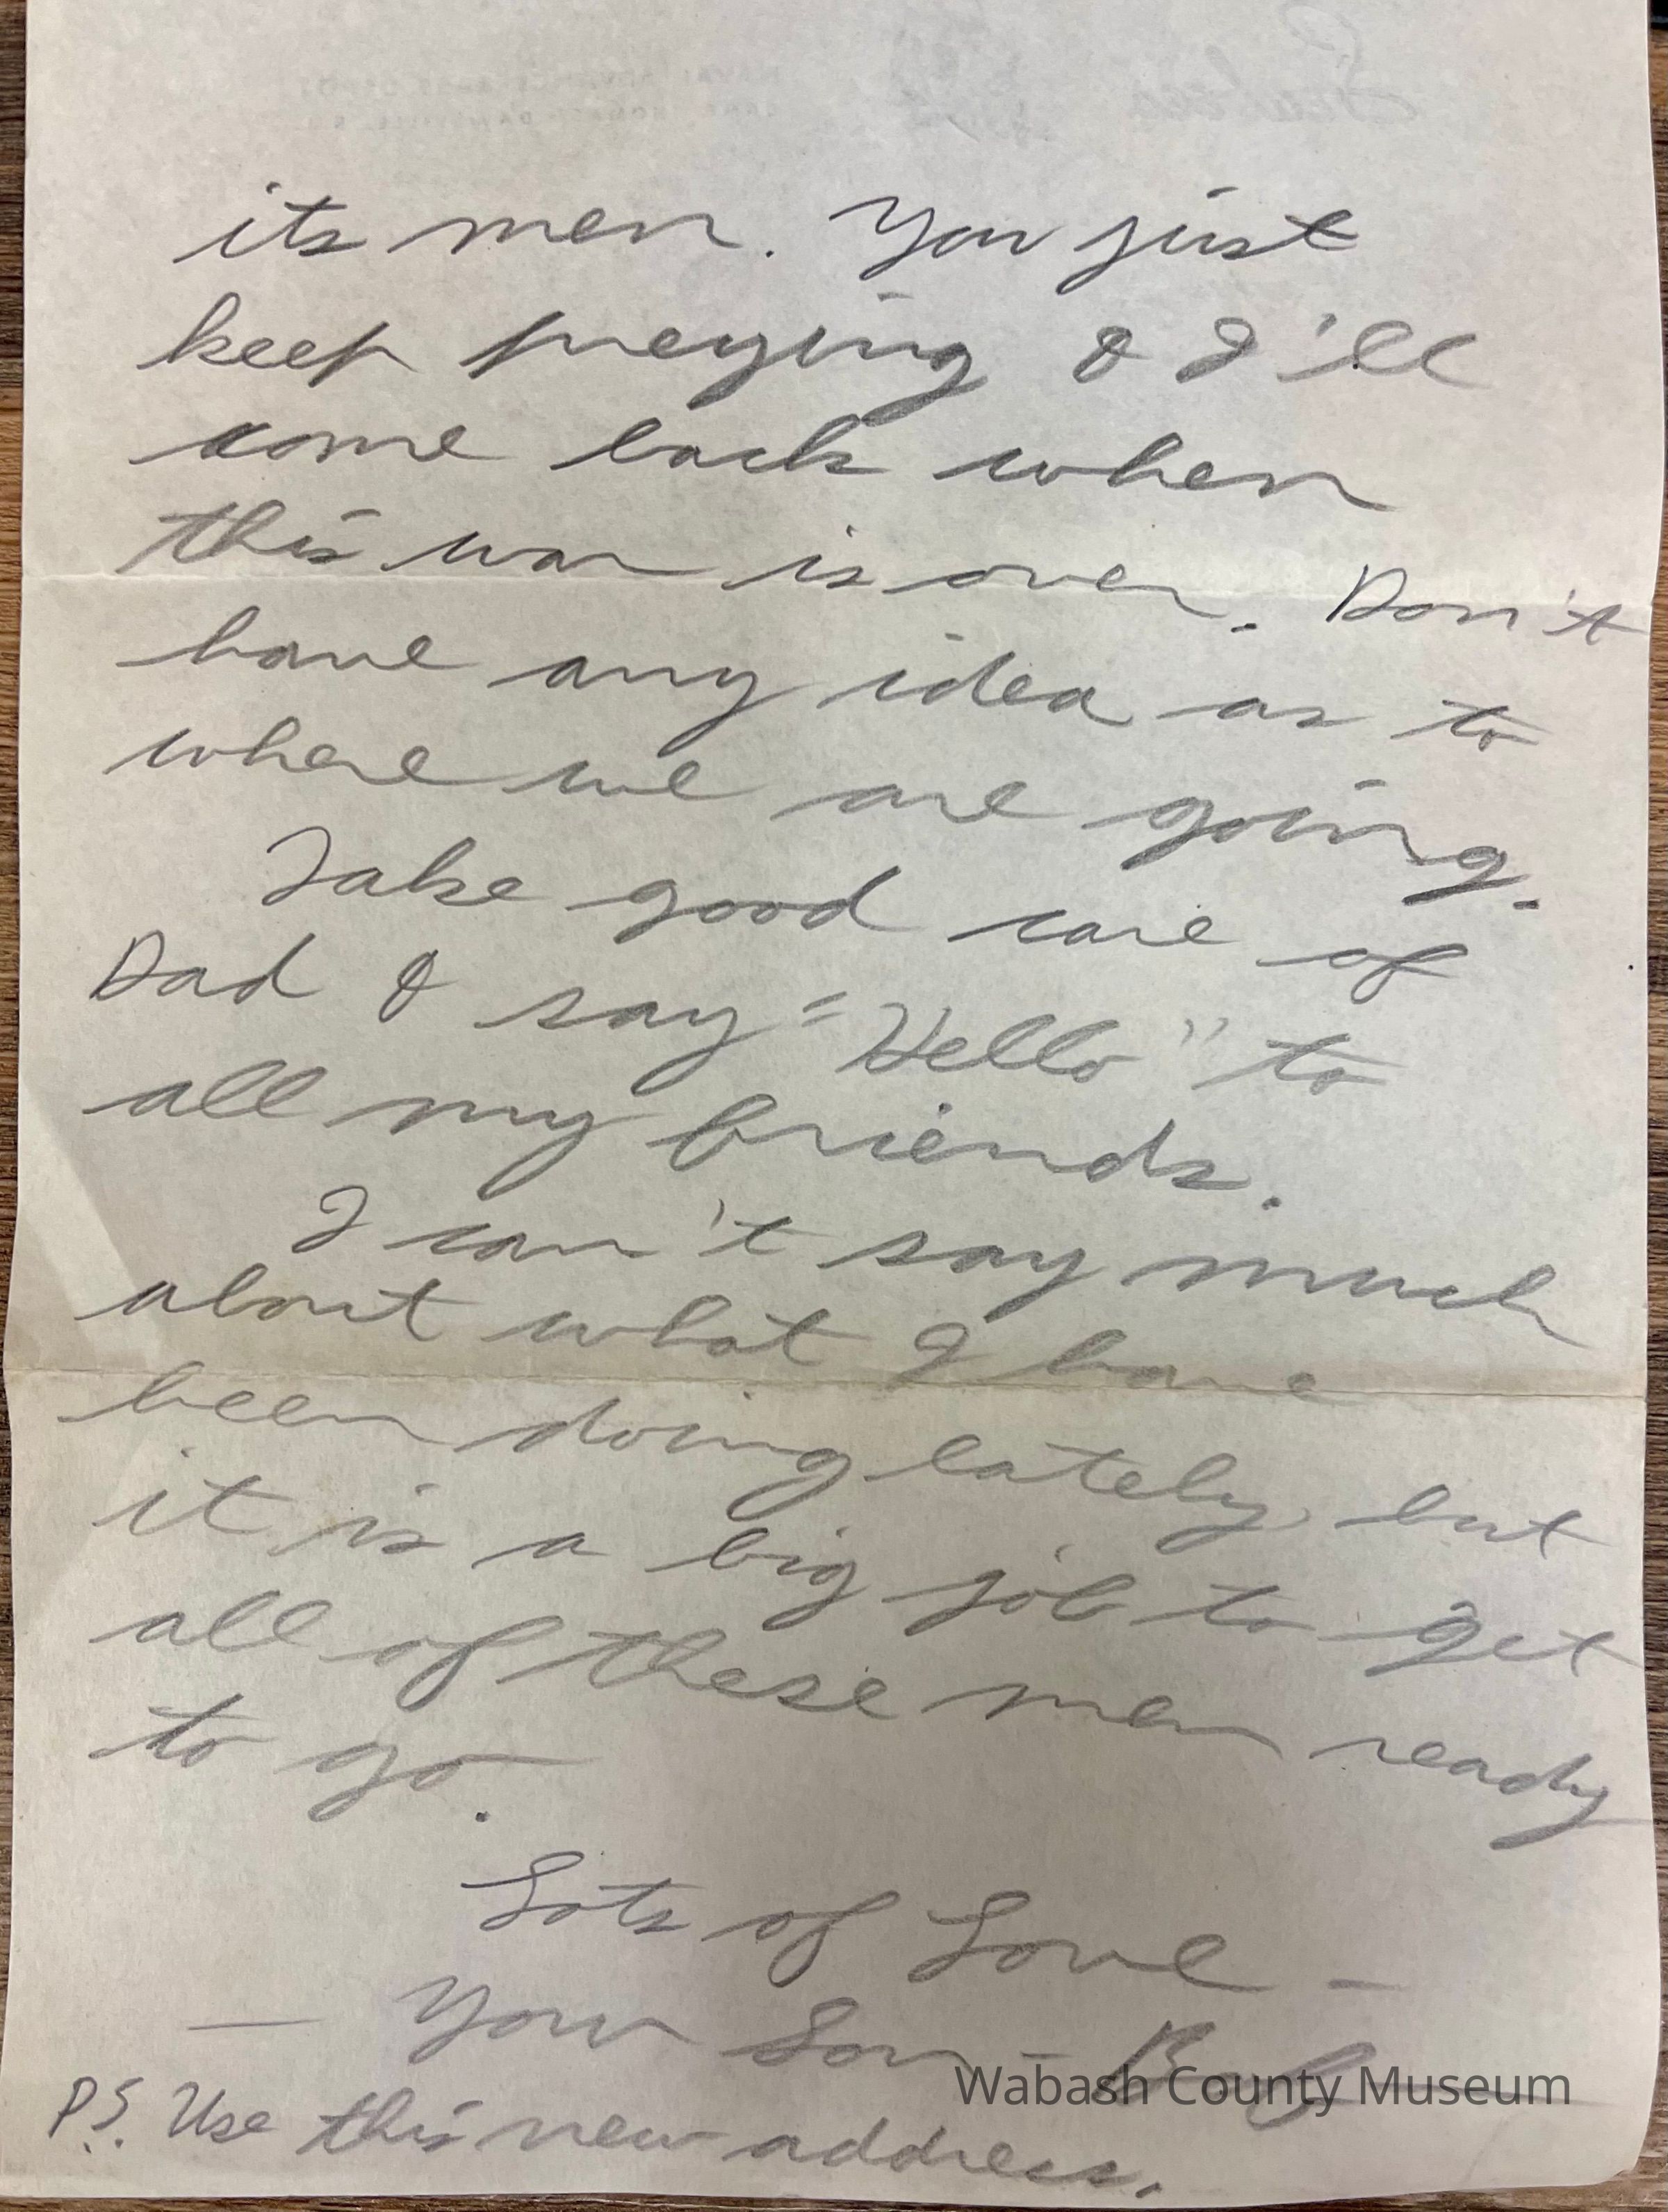 its men. You just
keep praying & I'll
come back when
this war is over. Don't
have any idea as to
where we are going.
Take good care of
Dad & say "Hello" to
all my friends.
I can't say much
about what I have
been doing lately but
it is a big job to get
all of these men ready
to go.
Lots of Love -
- Your Son - Bob
Wabash County Museum
P.S. Use this new address.